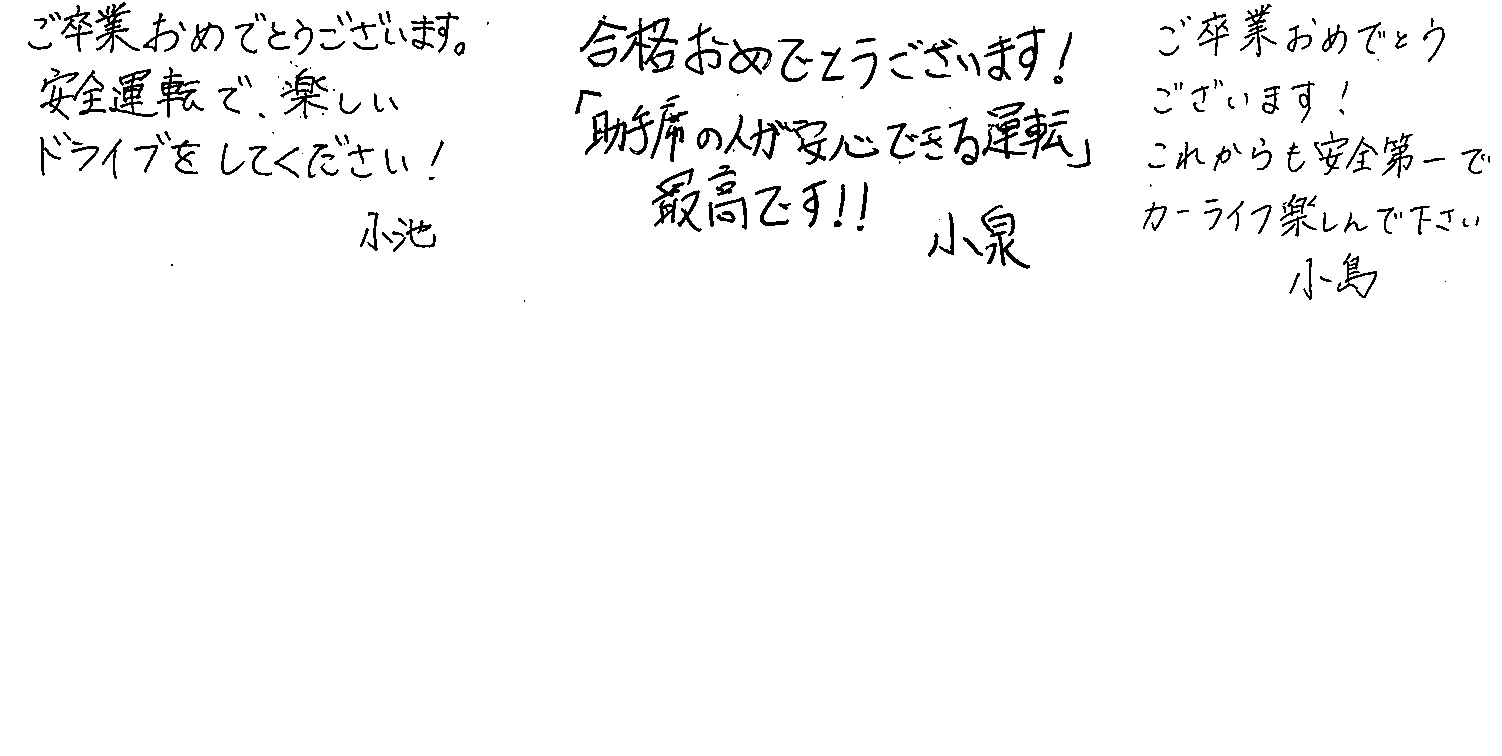 ご卒業おめでとうございます。
安全運転で、楽しい
ドライブをしてください!
小池
合格おめでとうございます!
「助手席の人が安心できる運転」
最高です!!
小泉
ご卒業おめでとう
ございます!
これからも安全第一で
カーライフ楽しんで下さい
小島